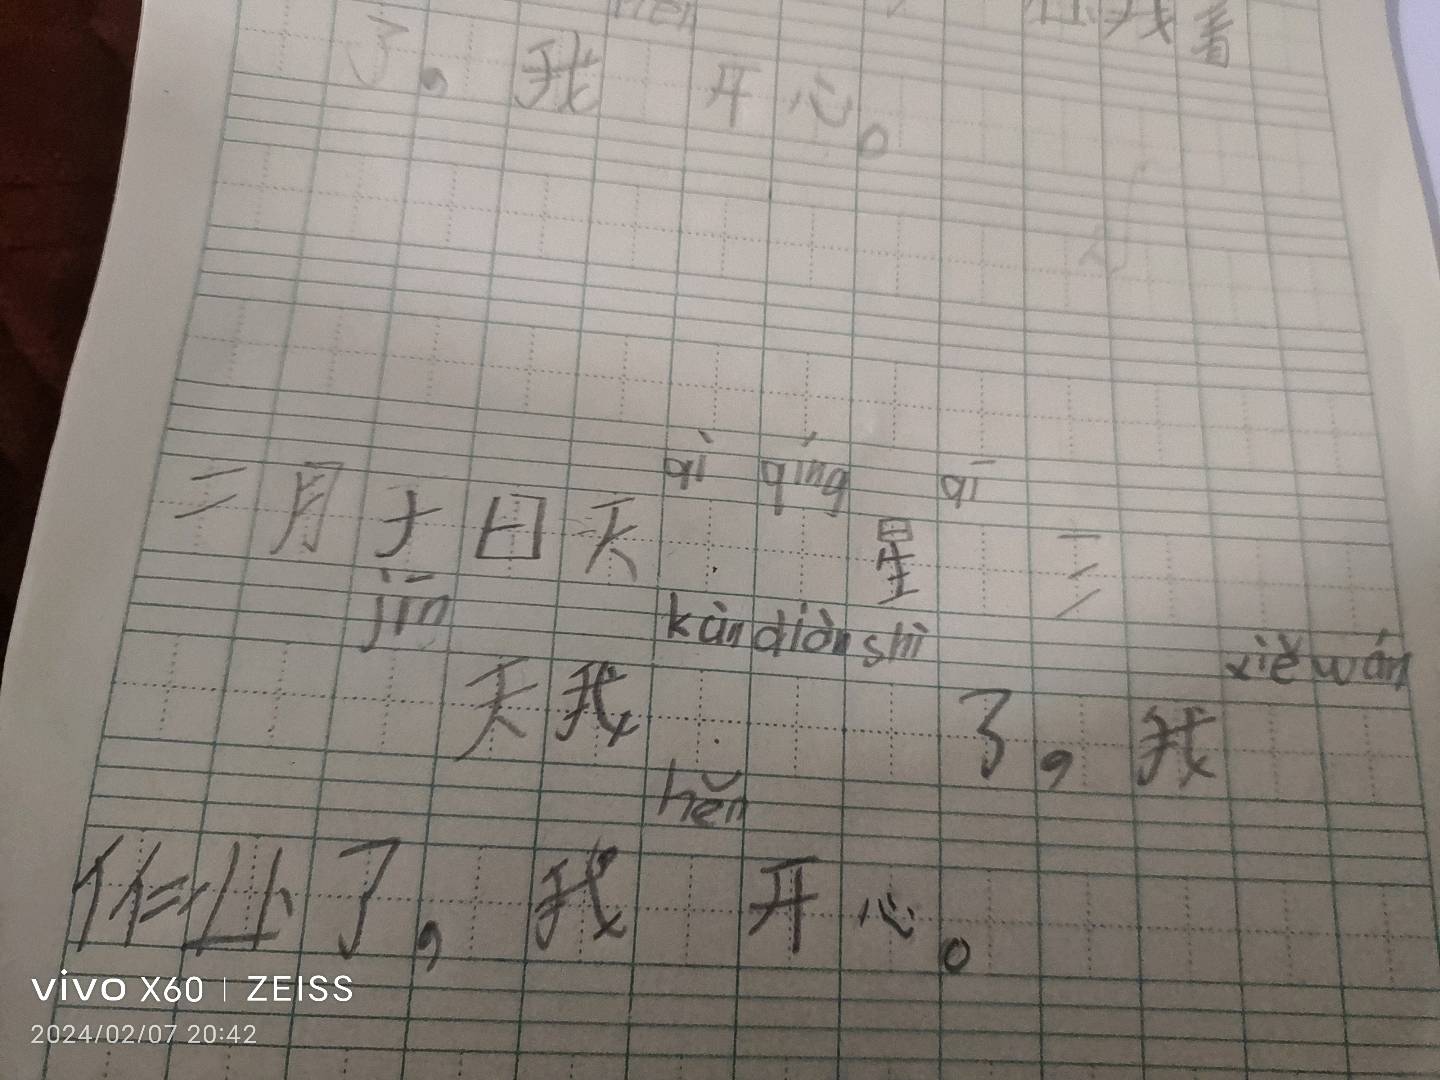 hěn
了，我 开心。
qì qíng qī
二月十日天 星 三
jīn kàn diàn shì xiě wán
天我 了，我
hěn
作业了，我 开心。
vivo X60 | ZEISS
2024/02/07 20:42